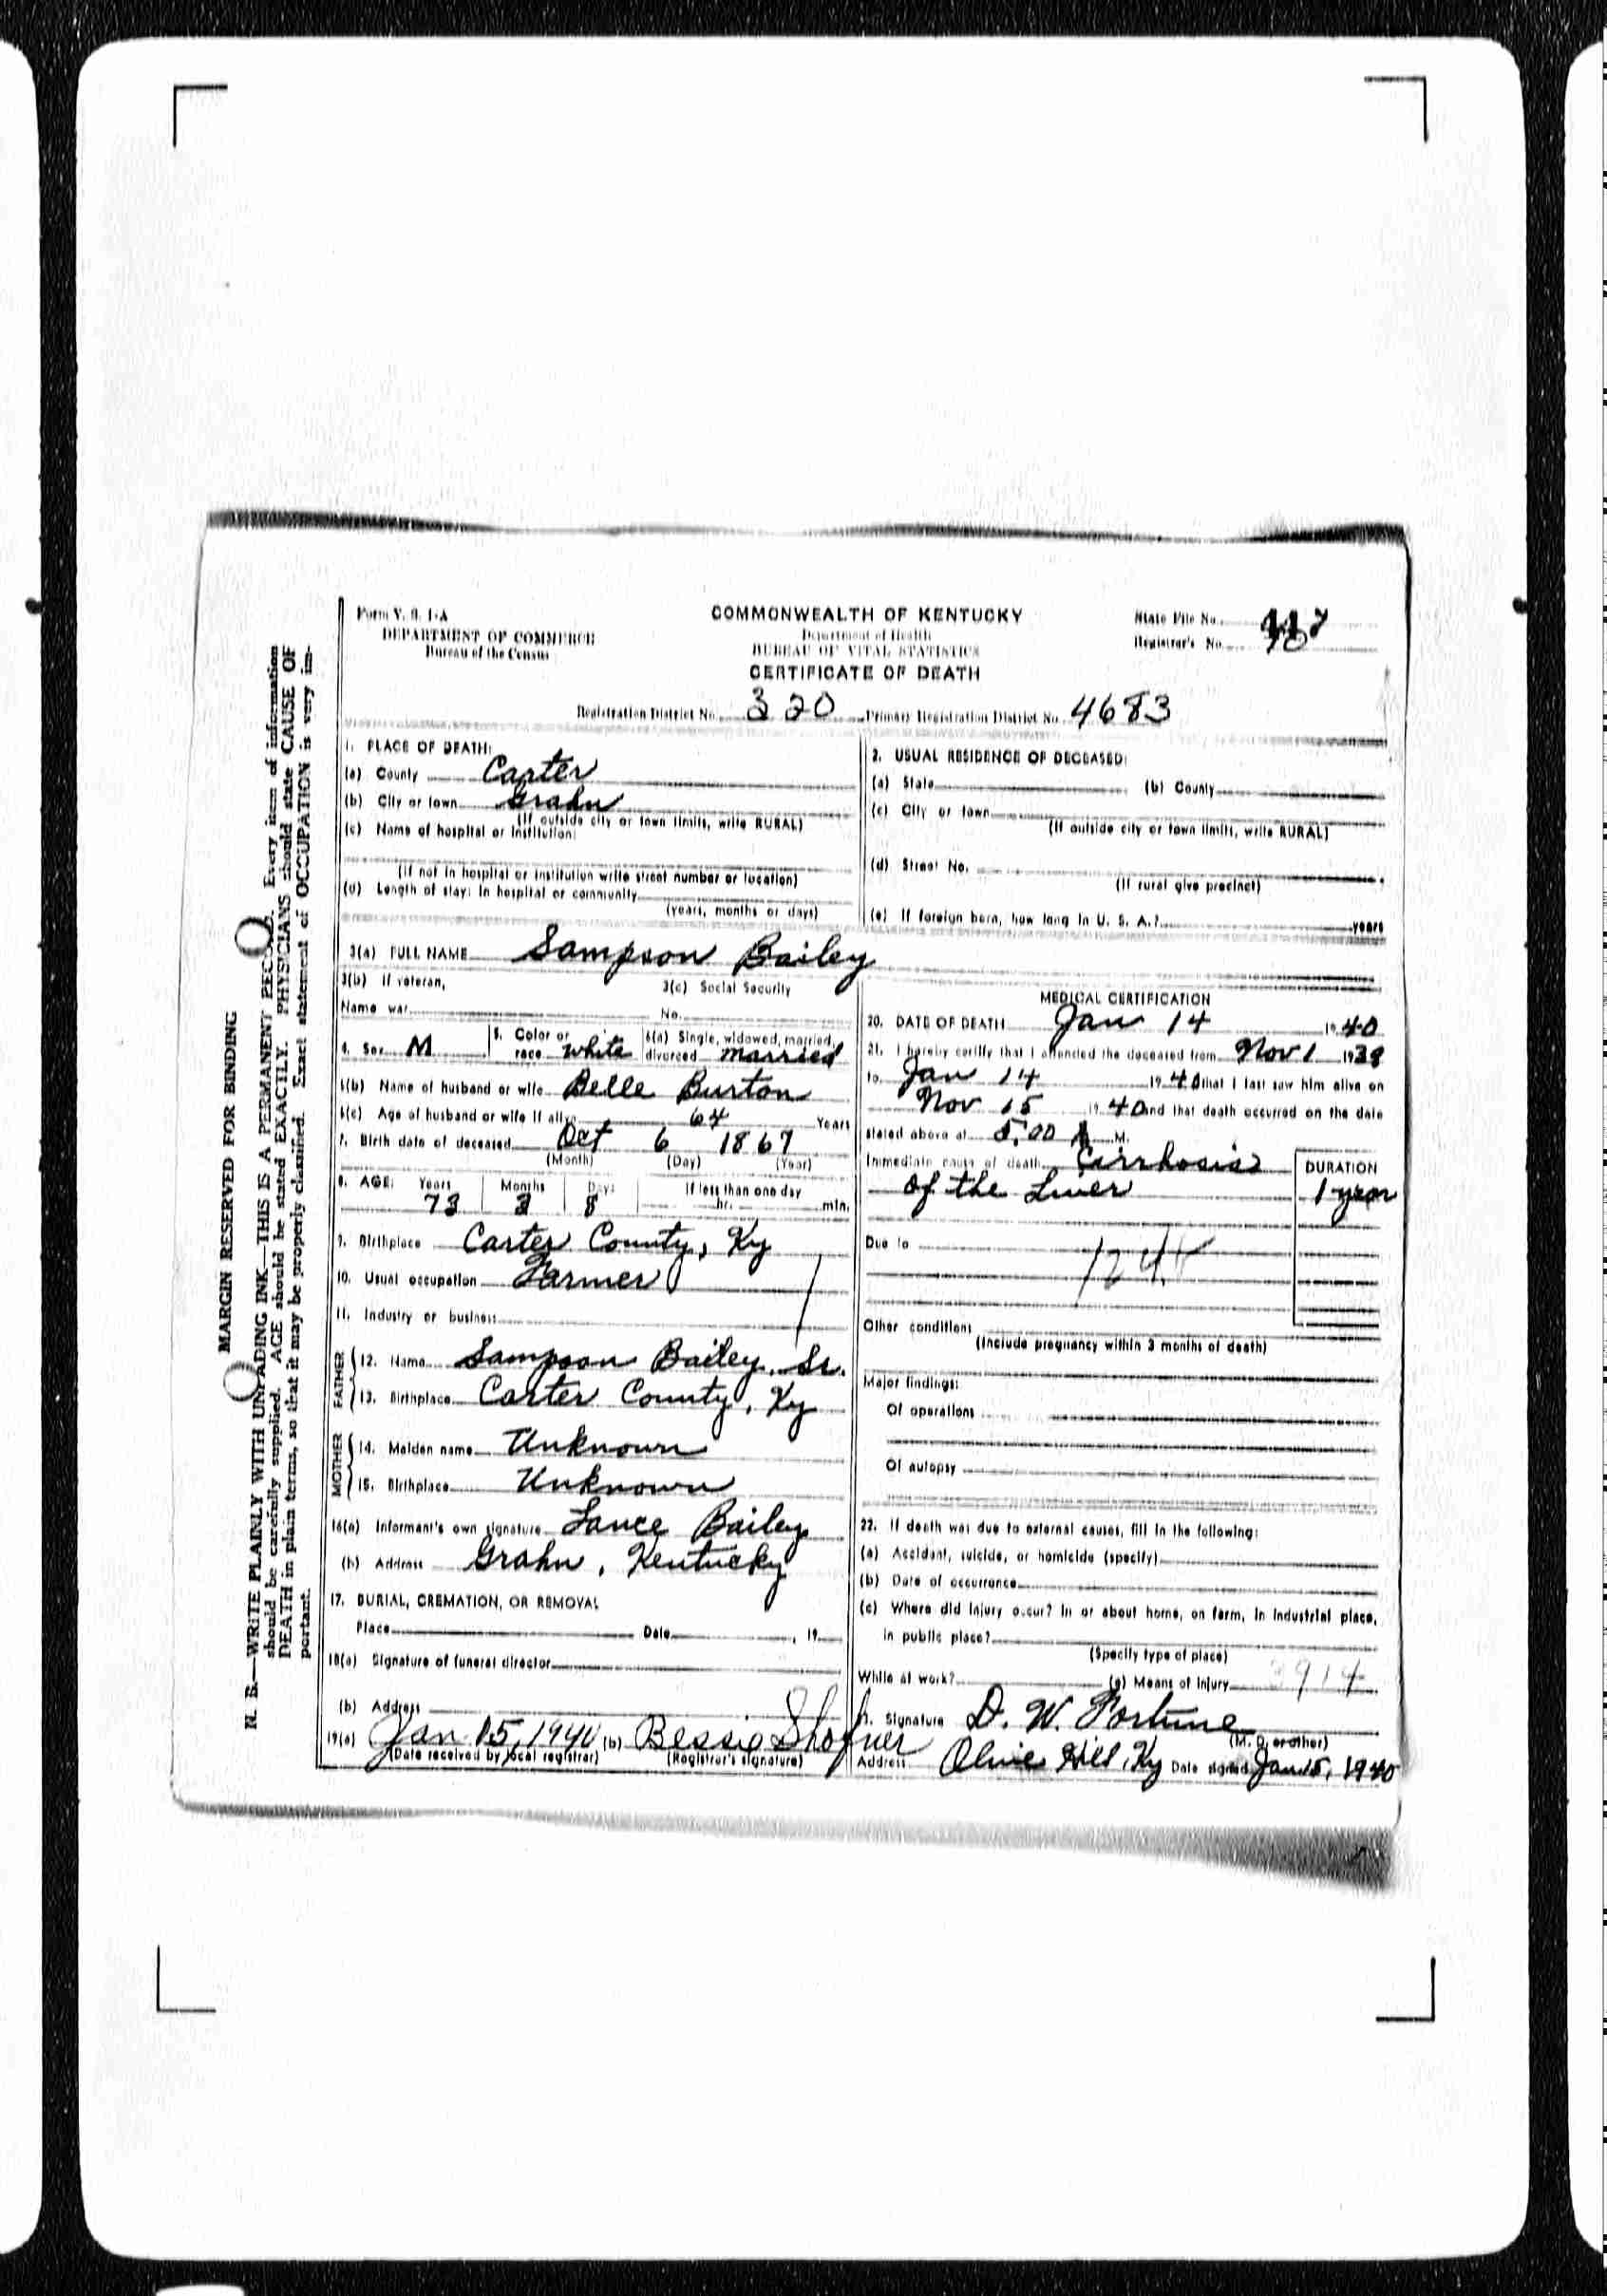 Form V. S. 1-A
DEPARTMENT OF COMMERCE
Bureau of the Census
COMMONWEALTH OF KENTUCKY
Department of Health
BUREAU OF VITAL STATISTICS
CERTIFICATE OF DEATH
State File No.
Registrar's No.
Registration District No. 320 Primary Registration District No. 4683
1. PLACE OF DEATH:
(a) County Carter
(b) City or town Grahn
(If outside city or town limits, write RURAL)
(c) Name of hospital or institution:
(If not in hospital or institution write street number or location)
(d) Length of stay: In hospital or community
(years, months or days)
2. USUAL RESIDENCE OF DECEASED:
(a) State (b) County
(c) City or town
(If outside city or town limits, write RURAL)
(d) Street No.
(If rural give precinct)
(e) If foreign born, how long in U. S. A.? years
3(a) FULL NAME Sampson Bailey
3(b) If veteran, 3(c) Social Security
Name war No.
4. Sex M 5. Color or race white 6(a) Single, widowed, married, divorced married
6(b) Name of husband or wife Belle Burton
6(c) Age of husband or wife if alive 64 Years
7. Birth date of deceased Oct 6 1867
(Month) (Day) (Year)
8. AGE: Years Months Days If less than one day
73 3 8 hr. min.
9. Birthplace Carter County, Ky
10. Usual occupation Farmer
11. Industry or business
FATHER
12. Name Sampson Bailey, Sr.
13. Birthplace Carter County, Ky
MOTHER
14. Maiden name Unknown
15. Birthplace Unknown
16(a) Informant's own signature Lance Bailey
(b) Address Grahn, Kentucky
17. BURIAL, CREMATION, OR REMOVAL
Place Date , 19
18(a) Signature of funeral director
(b) Address
19(a) Jan 15, 1940 (b) Bessie Shofner
(Date received by local registrar) (Registrar's signature)
MEDICAL CERTIFICATION
20. DATE OF DEATH Jan 14 1940
21. I hereby certify that I attended the deceased from Nov 1 1939
to Jan 14 1940 that I last saw him alive on
Nov 15 1940 and that death occurred on the date
stated above at 5:00 A M.
Immediate cause of death Cirrhosis
of the Liver
DURATION
1 year
Due to
Other conditions
(Include pregnancy within 3 months of death)
Major findings:
Of operations
Of autopsy
22. If death was due to external causes, fill in the following:
(a) Accident, suicide, or homicide (specify)
(b) Date of occurrence
(c) Where did injury occur? In or about home, on farm, in industrial place,
in public place?
(Specify type of place)
While at work? (e) Means of injury
Signature D. W. Fortune
(M. D. or other)
Address Olive Hill, Ky Date signed Jan 15, 1940
MARGIN RESERVED FOR BINDING
N. B.—WRITE PLAINLY WITH UNFADING INK—THIS IS A PERMANENT RECORD. Every item of information
should be carefully supplied. AGE should be stated EXACTLY. PHYSICIANS should state CAUSE OF
DEATH in plain terms, so that it may be properly classified. Exact statement of OCCUPATION is very im-
portant.